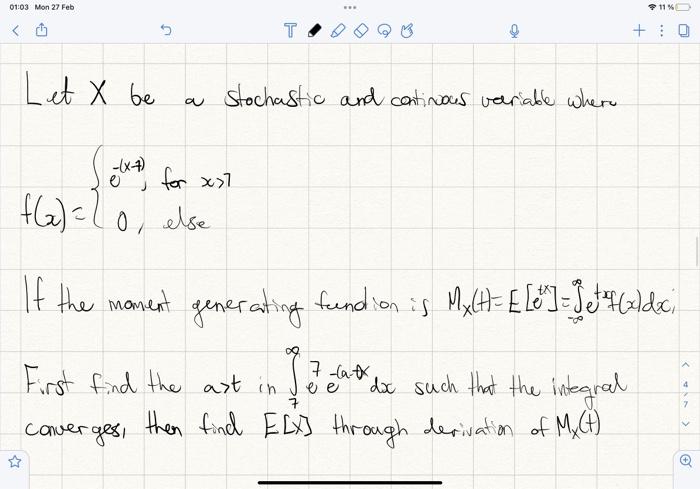 01:03 Mon 27 Feb
11 %
Let X be a stochastic and continous variable where
f(x)= { e^{-(x-7)}, for x>7
0, else
If the moment generating function is M_X(t)=E[e^{tX}]=∫_{-∞}^{∞} e^{tx} f(x)dx,
First find the a>t in ∫_7^∞ e^7 e^{-(a-t)x} dx such that the integral
converges, then find E[X] through derivation of M_X(t)
4
7